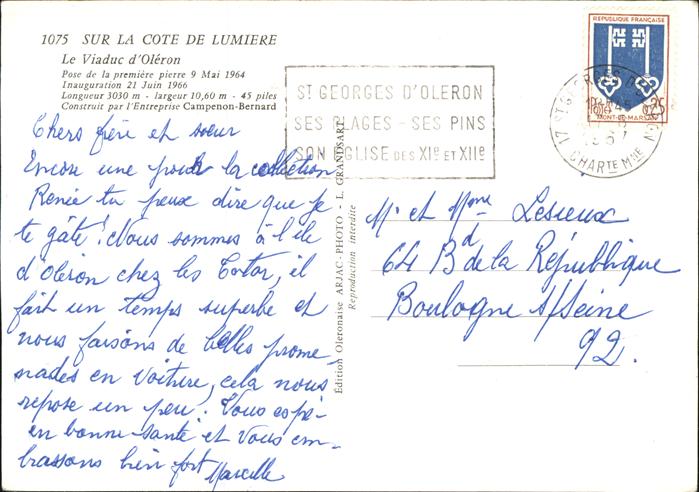 1075 SUR LA COTE DE LUMIERE
Le Viaduc d'Oléron
Pose de la première pierre 9 Mai 1964
Inauguration 21 Juin 1966
Longueur 3030 m - largeur 10,60 m - 45 piles
Construit par l'Entreprise Campenon-Bernard
Chers frère et sœur
Encore une pour la collection
Renée tu peux dire que je
te gâte! Nous sommes à l'île
d'oléron chez les il
fait un temps superbe et
nous faisons de belles prome-
nades en voiture, cela nous
repose un peu. Vous espè-
en bonne santé et vous em-
brassons bien fort Marcelle
Édition Oleronaise ARJAC-PHOTO - L. GRANDSART
Reproduction interdite
ST GEORGES D'OLERON
SES PLAGES - SES PINS
SON EGLISE DES XIe ET XIIe
REPUBLIQUE FRANÇAISE
POSTES 0,25
MONT-DE-MARSAN
17 ST GEORGES
CHARTE MME
Mr et Mme Lesieux
64 Bd de la République
Boulogne s/Seine
92.